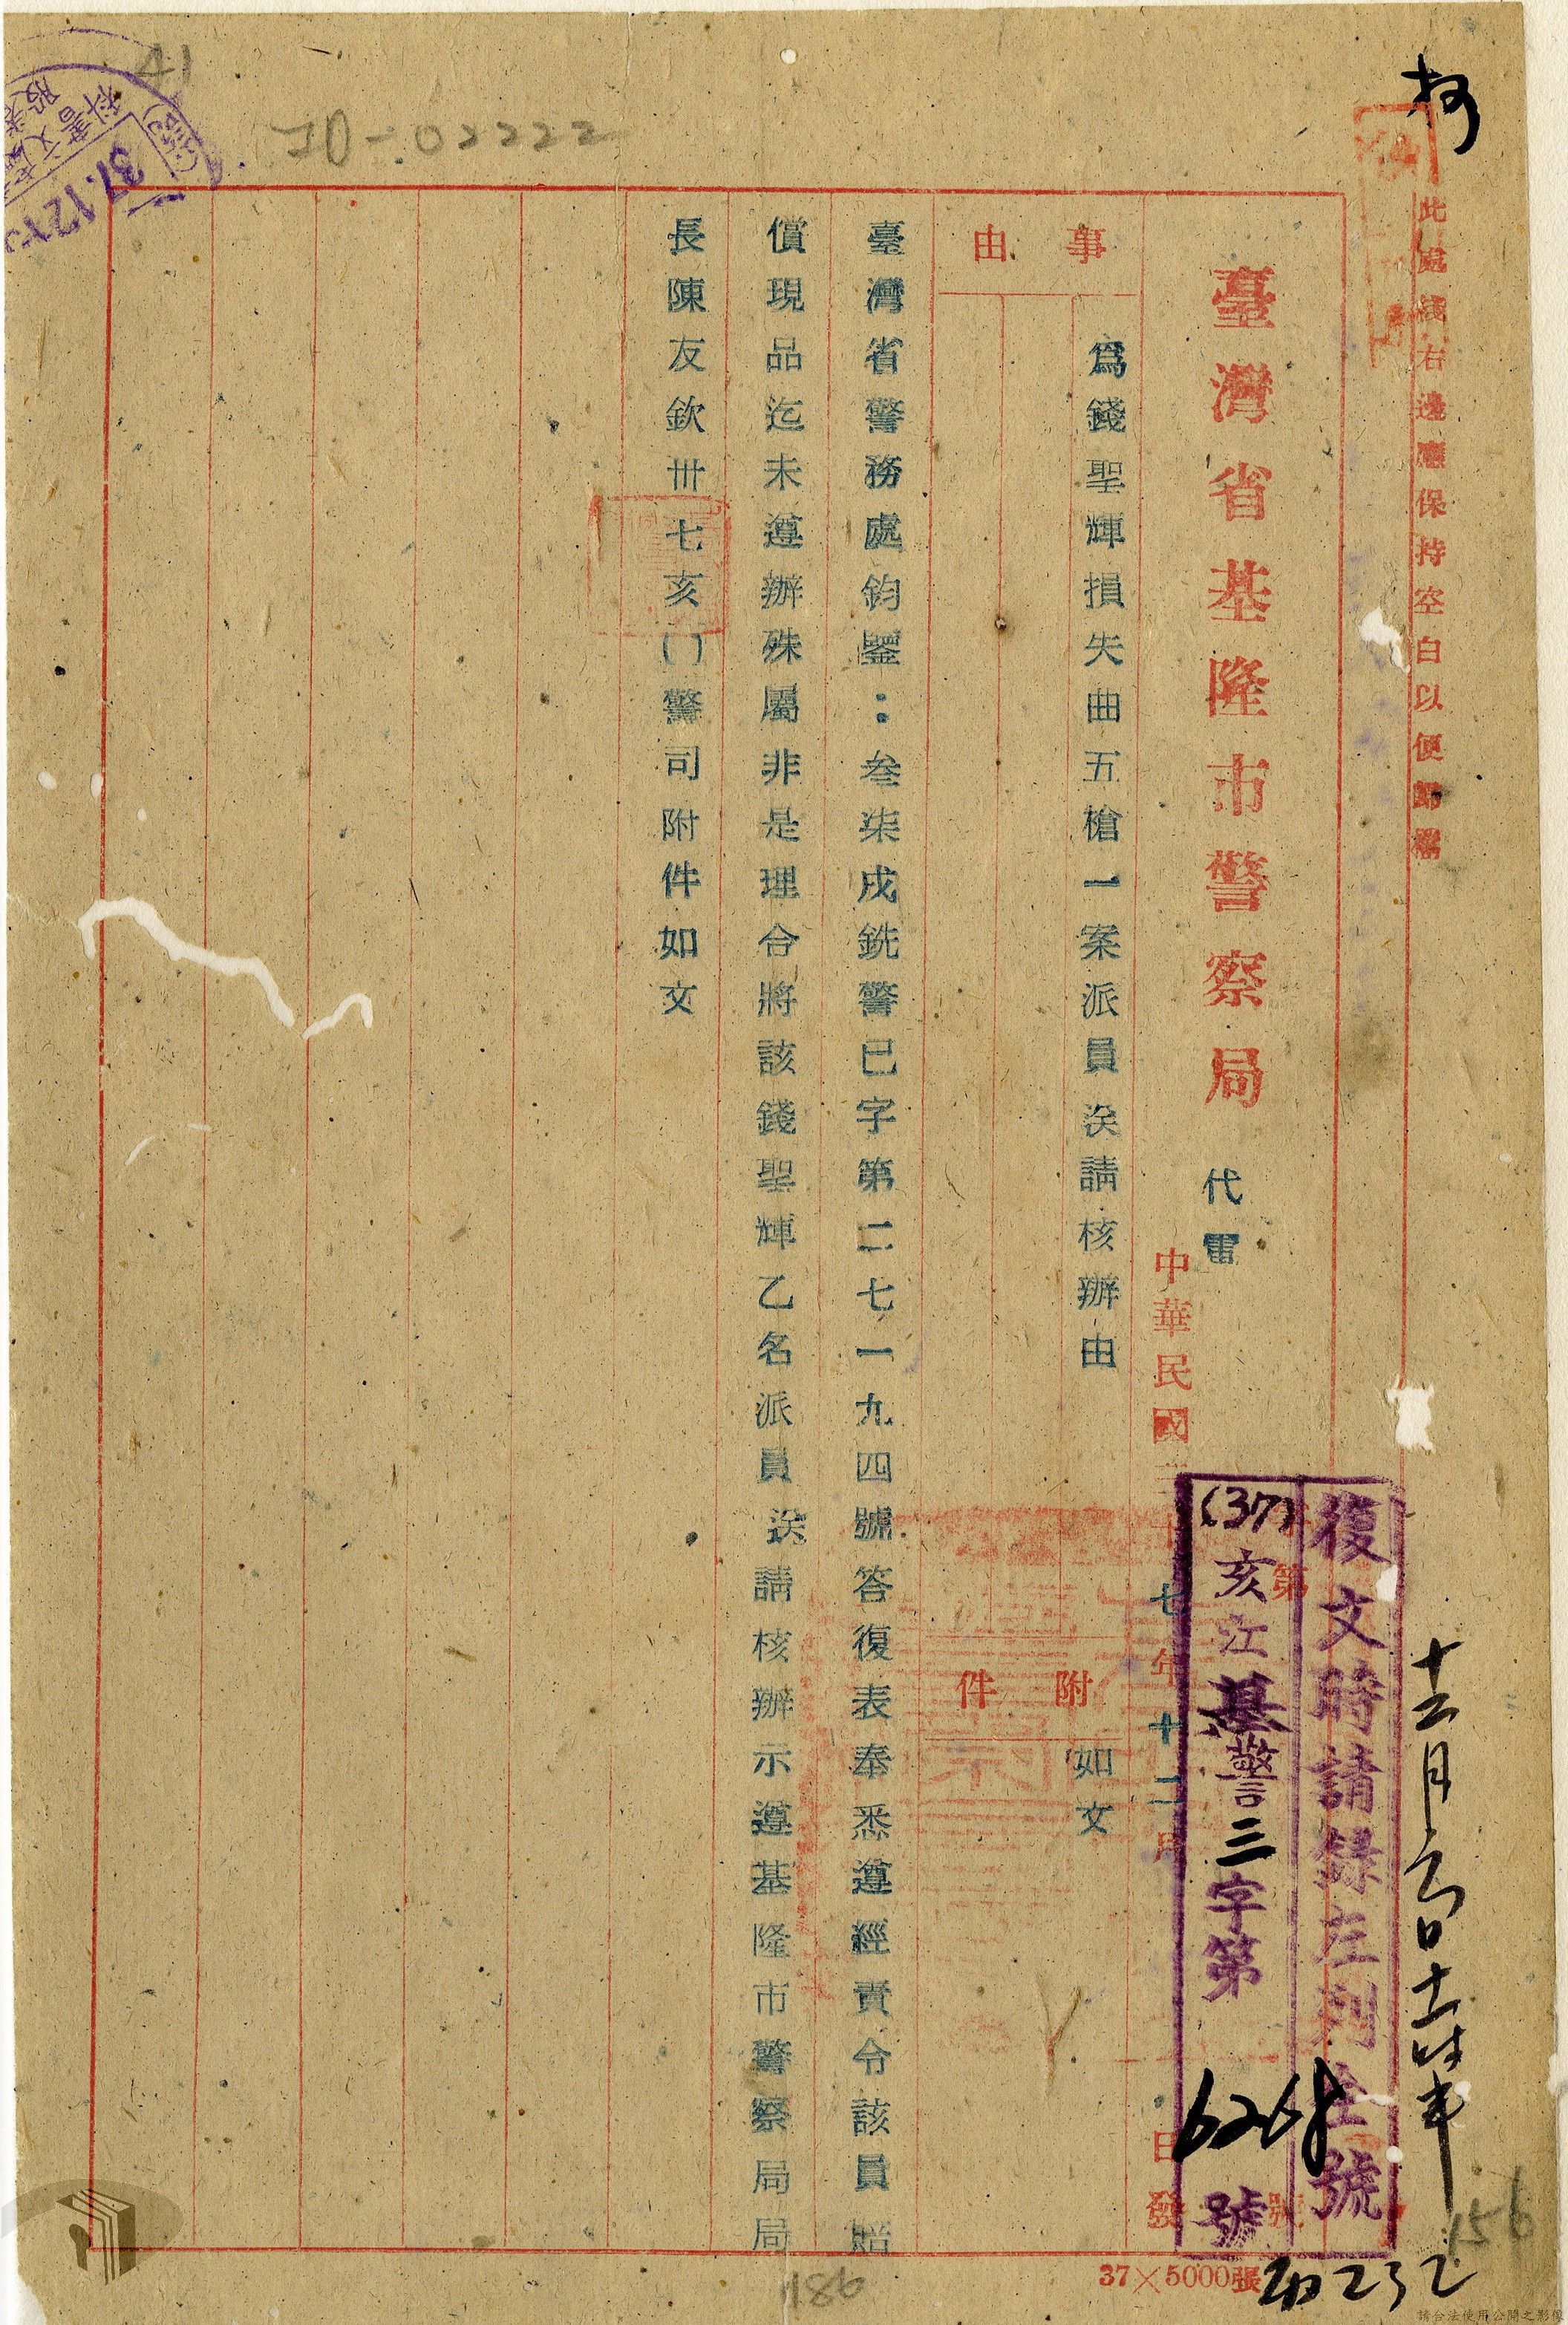 此處綫右邊應保持空白以便歸檔
臺灣省基隆市警察局 代電
復文時請錄左列全號
(37)亥江基警三字第 6268 號
中華民國三十七年十二月 日發
事由
為錢聖輝損失曲五槍一案派員送請核辦由
附件
如文
臺灣省警務處鈞鑒：叁柒戌銑警已字第二七一九四號答復表奉悉遵經責令該員賠
償現品迄未遵辦殊屬非是理合將該錢聖輝乙名派員送請核辦示遵基隆市警察局局
長陳友欽卅七亥()警司附件如文
37×5000張
41
J0-02222
37.12.
156
186
請合法使用公開之影像